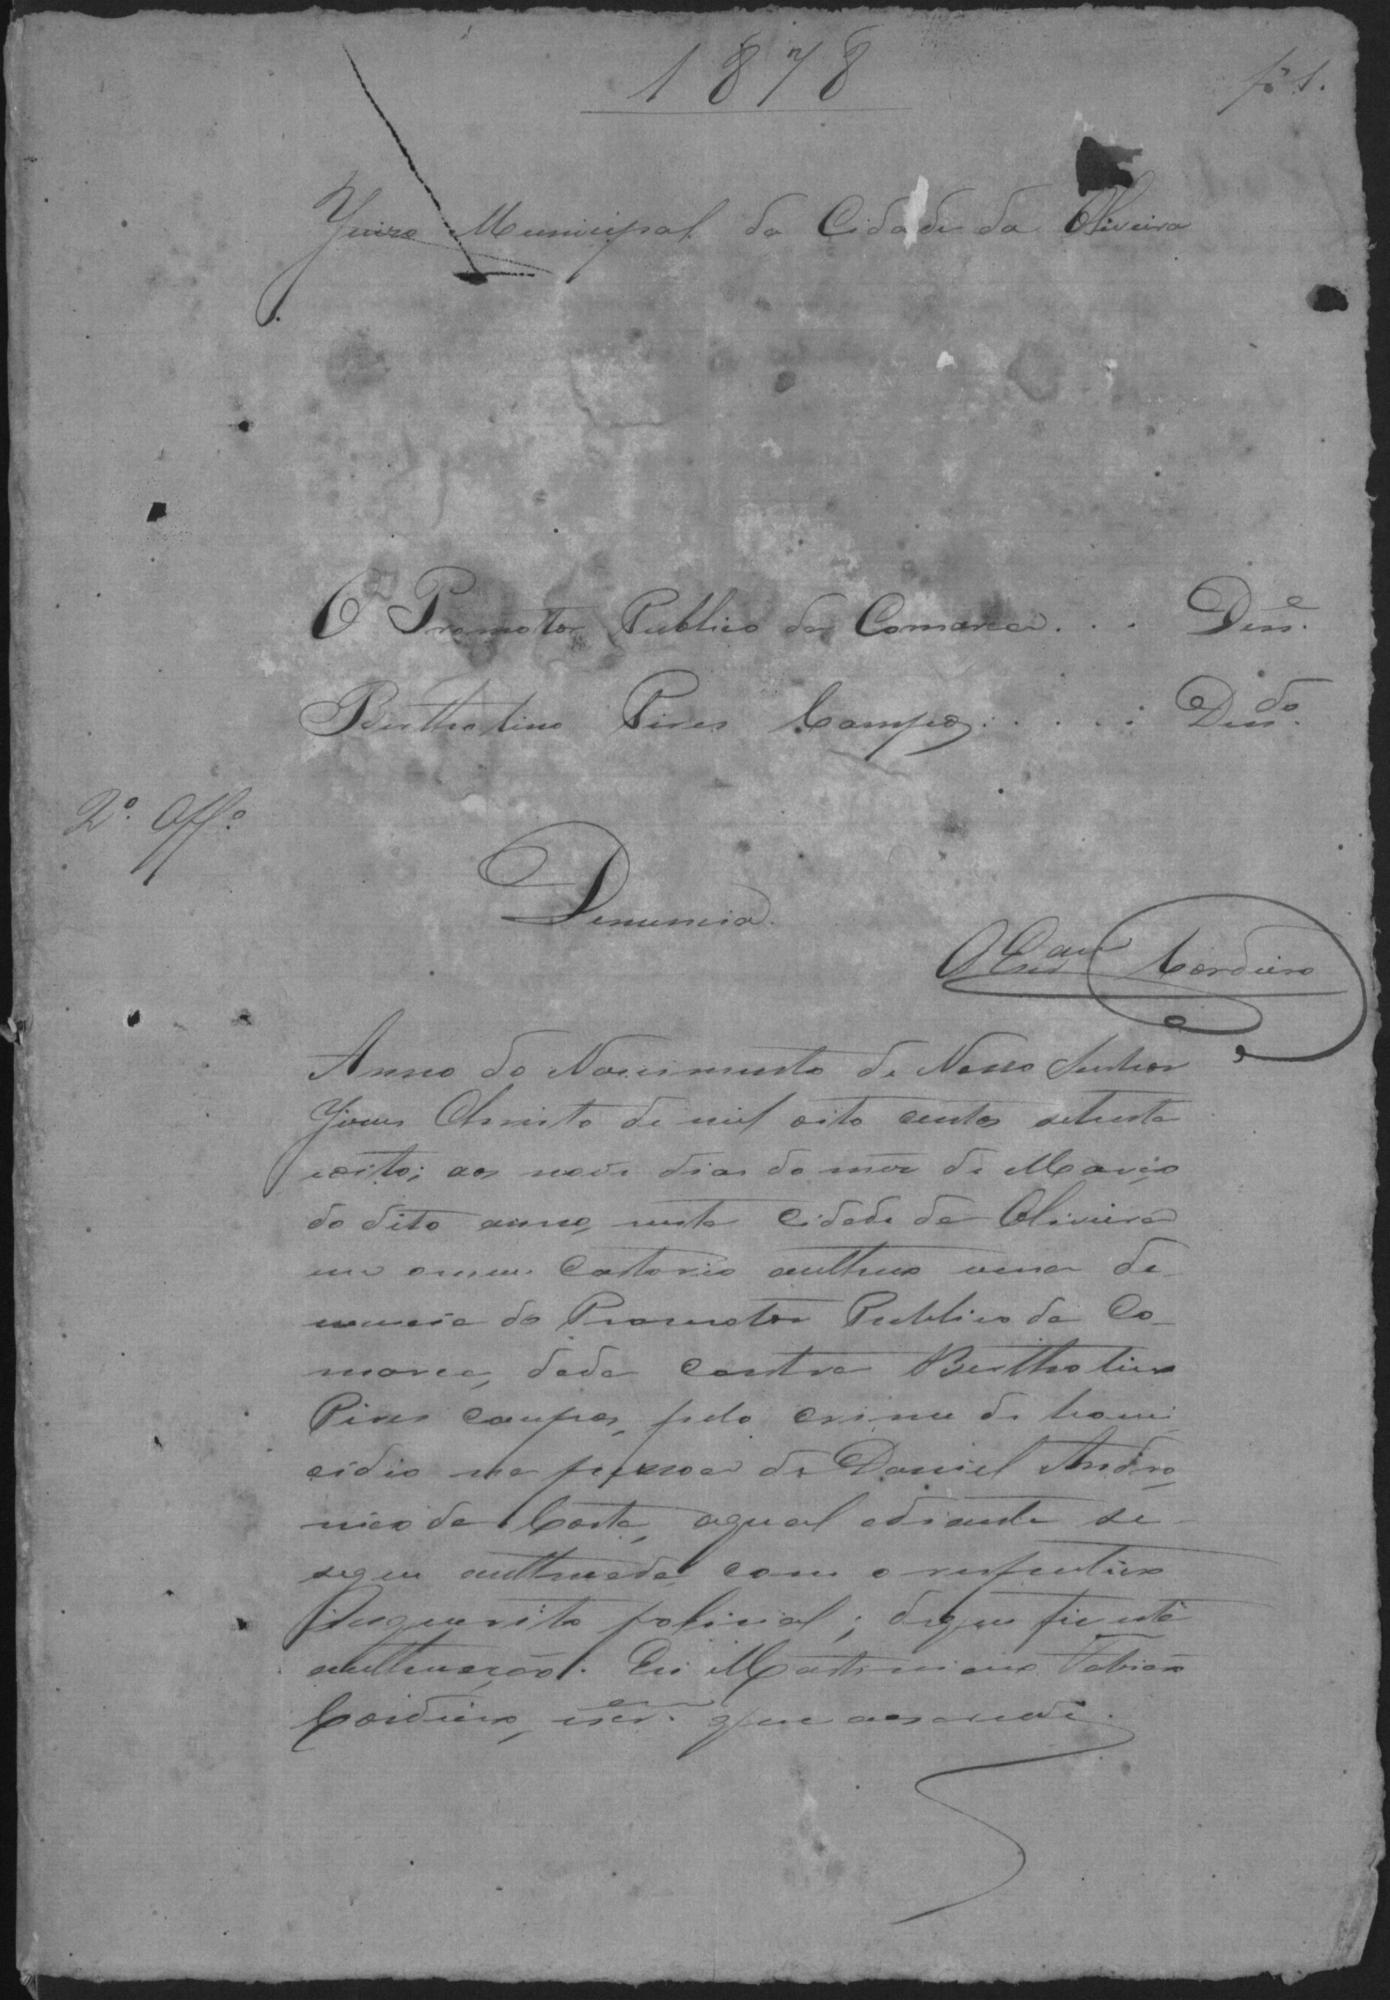 1878
fs 1.
Juizo Municipal da Cidade da Oliveira
O Promotor Publico da Comarca . . . Den.e
Bertholino Pires Campos . . . . : Den.do
2º. Off.º
Denuncia.
O Escam Cordeiro
Anno do Nascimento de Nosso Senhor
Jesus Christo de mil oito centos setenta
eoito; aos nove dias do mez de Março
do dito anno, nesta Cidade da Oliveira
em omeu Cartorio authuo uma de-
nuncia do Promotor Publico da Co-
marca, dada contra Bertholino
Pires Campos, pelo crime de homi
cidio na pessoa de Daniel Andro
nico da Costa, aqual adiante se-
segue authuada com o respectivo
Inquerito policial; do que fiz esta
authuação. Eu Martiniano Fabião
Cordeiro, escr.am que aescrevi.